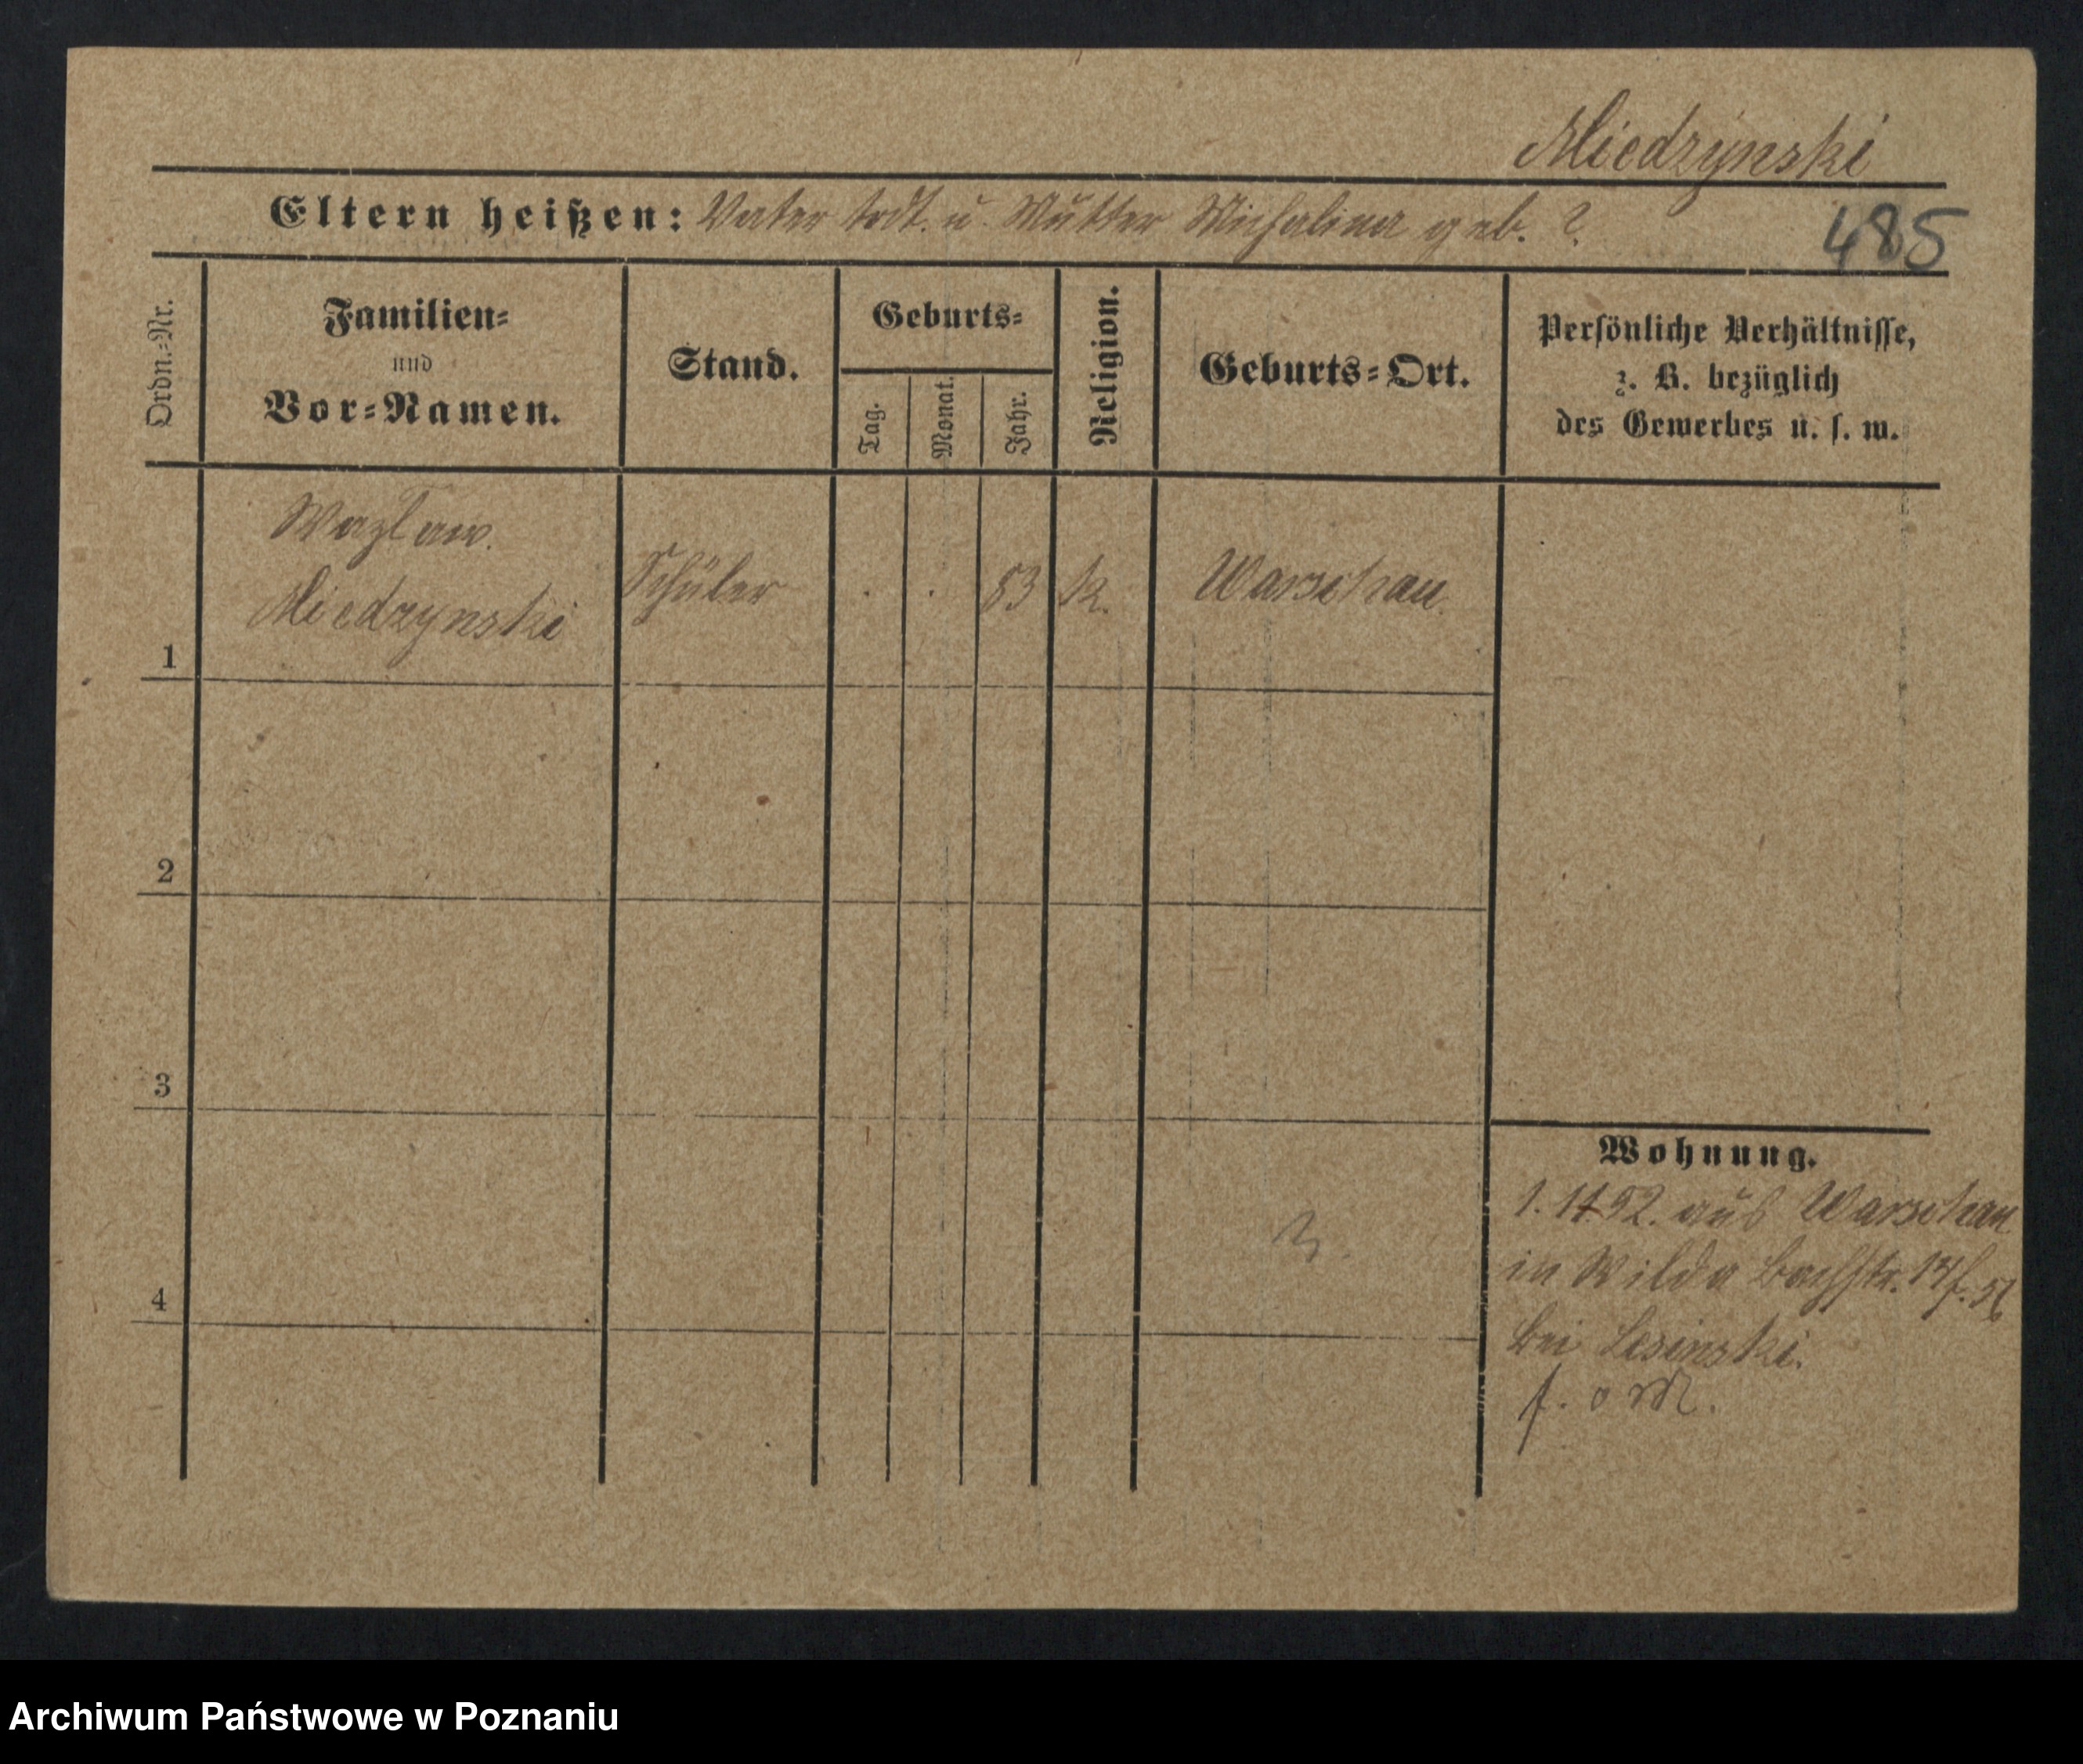 Miedzynski
Eltern heißen: Vater todt. u. Mutter Michalina geb. ?
485
Ordn.-Nr.
Familien-
und
Vor-Namen.
Stand.
Geburts-
Tag.
Monat.
Jahr.
Religion.
Geburts-Ort.
Persönliche Verhältnisse,
z. B. bezüglich
des Gewerbes u. s. w.
Wazlaw.
Miedzynski
Schüler
. . 83
k.
Warschau.
1
2
3
4
Wohnung.
1. 92. aus Warschau
in Wilda Bachstr.
bei Lesinski.
Archiwum Państwowe w Poznaniu